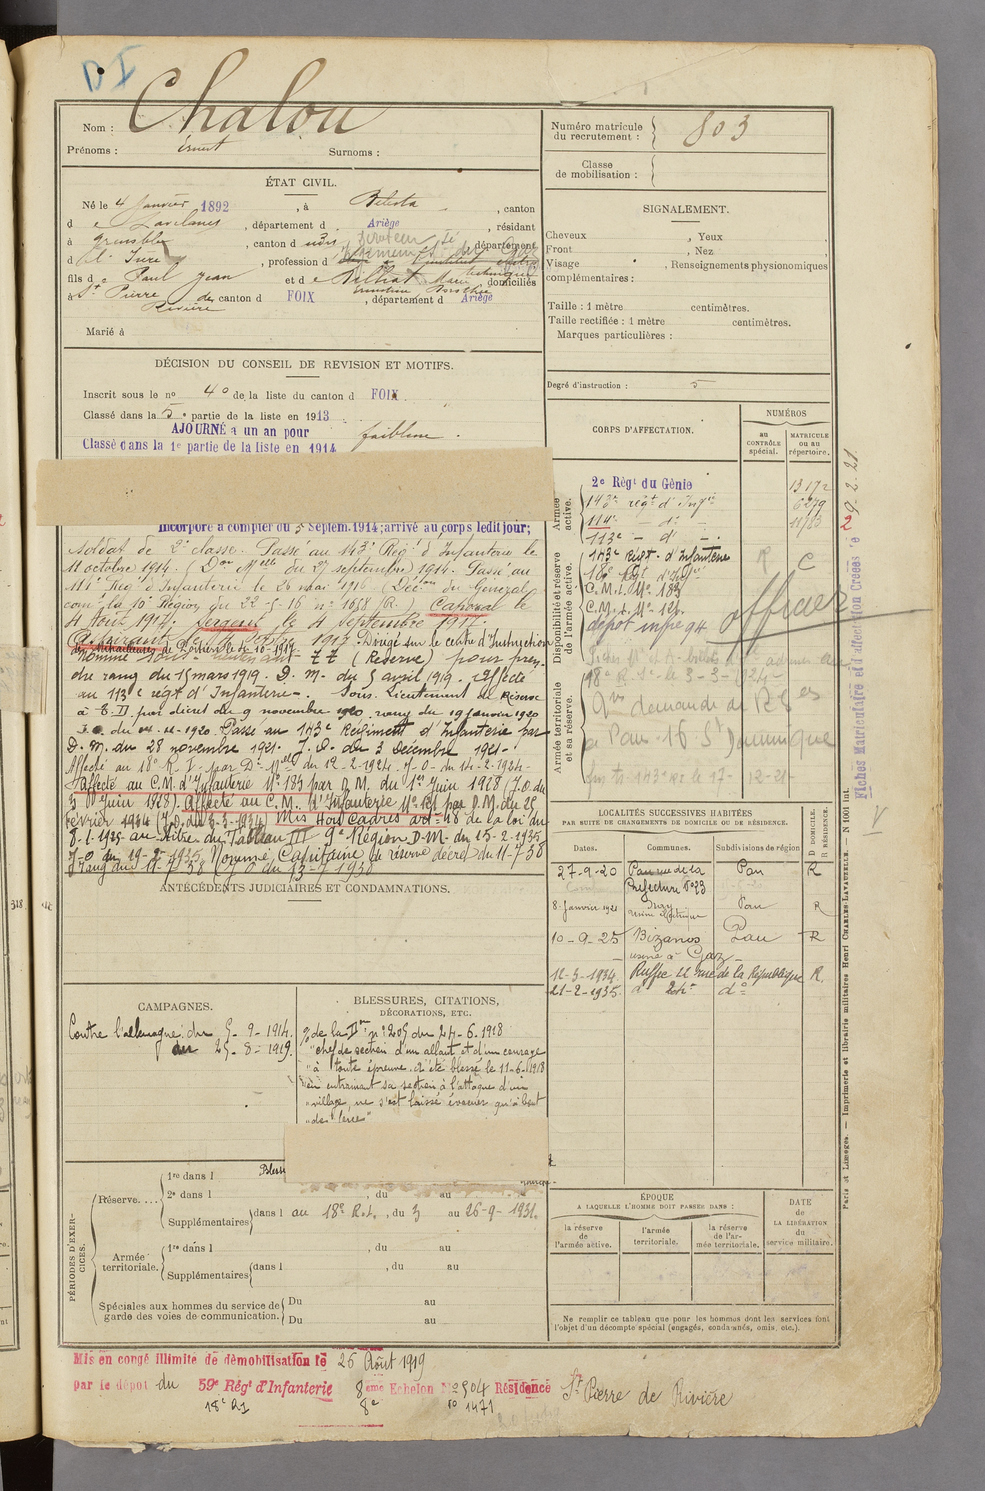 DI
Nom : Chalou
Prénoms : Ernest Surnoms :
Numéro matricule du recrutement : 803
Classe de mobilisation :
ÉTAT CIVIL.
Né le 4 Janvier 1892, à Belesta, canton
d e Lavelanet, département d Ariège, résidant
à Grenoble, canton d udis, département
d el' Isere, profession d
fils d e Paul Jean et d e domiciliés
à St Pierre de Rivière canton d FOIX, département d Ariège
Marié à
SIGNALEMENT.
Cheveux , Yeux
Front , Nez
Visage , Renseignements physionomiques
complémentaires :
Taille : 1 mètre centimètres.
Taille rectifiée : 1 mètre centimètres.
Marques particulières :
Degré d'instruction : 5
DÉCISION DU CONSEIL DE REVISION ET MOTIFS.
Inscrit sous le no 4° de la liste du canton d FOIX
Classé dans la 5e partie de la liste en 1913
AJOURNÉ a un an pour faiblesse.
Classé dans la 1e partie de la liste en 1914
Incorporé à compter du 5 Septem. 1914; arrivé au corps ledit jour;
soldat de 2e classe. Passé au 143e Régt d'Infanterie le
11 octobre 1914. (Don Melle du 27 septembre 1914. Passé au
114e Régt d'Infanterie le 26 mai 1916 (Décion du Général
comt la 10e Région du 22-5-16 n° 1058/R.) Caporal le
4 août 1917. Sergent le 4 septembre 1917.
Aspirant le octobre 1917. Dirigé sur le centre d'Instruction
de Mitrailleuses de Poitiers le 10-1917
nommé sous-lieutenant TT (Reserve) pour pren-
dre rang du 15 mars 1919. D. M. du 5 avril 1919. affecté
au 113e regt d'Infanterie. Sous-Lieutenant de Réserve
à T.D. par décret du 9 novembre 1920. rang du 19 janvier 1920
J.O. du 1920. Passé au 143e Régiment d'Infanterie par
D. M. du 28 novembre 1921. J. O. du 3 Décembre 1921.
Affecté au 18e R. I. par Dn Melle du 12-2-1924. J-O- du 14-2-1924-
Affecté au C.M. d'Infanterie N° 183 par D.M. du 1er Juin 1928 (J.O. du
3 Juin 1928). Affecté au C.M. d'Infanterie N° 121 par D.M. du 25
février 1934 (J.O. du 3-3-1934) Mis Hors Cadres art. 48 de la loi du
8-1-1925 au titre du Tableau III 9e Région. D-M- du 15-2-1935
J-O du 19-2-1935. Nommé Capitaine de réserve décret du 11-7-38
rang du 11-7-38 (J O du 13-7-1938
CORPS D'AFFECTATION.
NUMÉROS
au CONTRÔLE spécial.
MATRICULE ou au répertoire.
Armée active.
2e Régt du Génie 13172
143e régt d'Infie 6279
114e - d° - 11783
113e - d° -
Disponibilité et réserve de l'armée active.
143e Régt. d'Infanterie
18e Régt d'Infie
C.M.I. N° 183
C.M.I. N° 121.
dépôt infie 94
R C
officier
Armée territoriale et sa réserve.
18e R.I. le 3-3-1924-
demande de
à Pau. 16 St Dominique
143e RI le 17-12-21-
2 9-2-21
Fiches Matriculaire et d'affectation Créées le
LOCALITÉS SUCCESSIVES HABITÉES
PAR SUITE DE CHANGEMENTS DE DOMICILE OU DE RÉSIDENCE.
Dates. Communes. Subdivisions de région D DOMICILE. R RÉSIDENCE.
27-9-20 Pau rue de la Préfecture n° 23 Pau R
8 janvier 1921 Nay Usine électrique Pau R
10-9-25 Bizanos usine à Gaz Pau R
12-3-1934. Ruffec 22 rue de la République R.
21-2-1935. d° d°
ANTÉCÉDENTS JUDICIAIRES ET CONDAMNATIONS.
CAMPAGNES.
Contre l'allemagne du 5-9-1914.
au 25-8-1919.
BLESSURES, CITATIONS,
DÉCORATIONS, ETC.
O de la Don n° 205 du 24-6-1918
"chef de section d'un allant et d'un courage
"à toute épreuve. A été blessé le 11-6-1918
"en entrainant sa section à l'attaque d'un
"village, ne s'est laissé évacuer qu'à bout
"de force"
PÉRIODES D'EXERCICES.
Réserve....
1re dans l
2e dans l , du au
Supplémentaires dans l au 18e R.I., du 3 au 26-9-1931.
Armée territoriale.
1re dans l , du au
Supplémentaires dans l , du au
Spéciales aux hommes du service de
garde des voies de communication.
Du au
Du au
ÉPOQUE
A LAQUELLE L'HOMME DOIT PASSER DANS :
la réserve de l'armée active.
l'armée territoriale.
la réserve de l'armée territoriale.
DATE de LA LIBÉRATION du service militaire.
Ne remplir ce tableau que pour les hommes dont les services font
l'objet d'un décompte spécial (engagés, condamnés, omis, etc.).
Paris et Limoges. — Imprimerie et librairie militaires Henri CHARLES-LAVAUZELLE. — N 1001 int.
Mis en congé illimité de démobilisation le 26 Août 1919
par le dépot du 59e Régt d'Infanterie 8eme Echelon N° 504 Résidence St Pierre de Rivière
18e RI 8e n° 1471